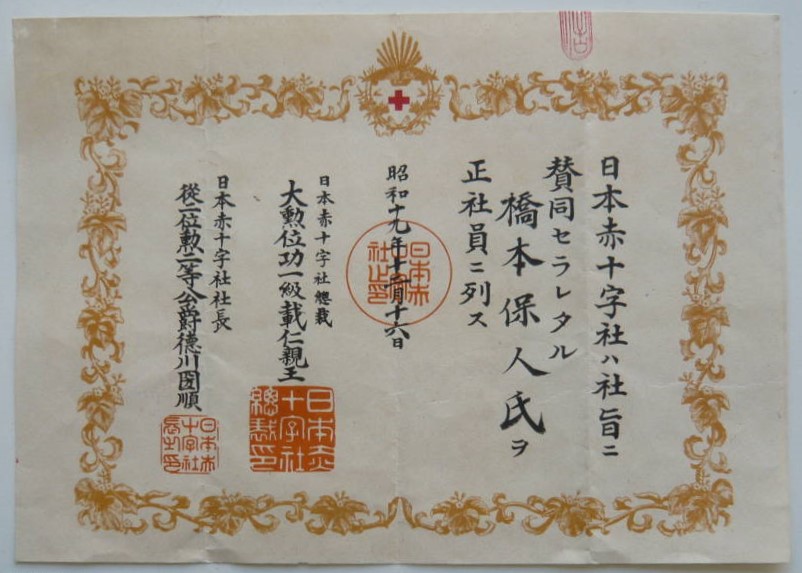 日本赤十字社ハ社旨ニ
賛同セラレタル
橋本保人氏ヲ
正社員ニ列ス
昭和十九年十二月十六日
日本赤十字社總裁
大勲位功一級載仁親王
日本赤十字社社長
從二位勲二等公爵德川圀順
日本赤十字社總裁印
日本赤十字社長之印